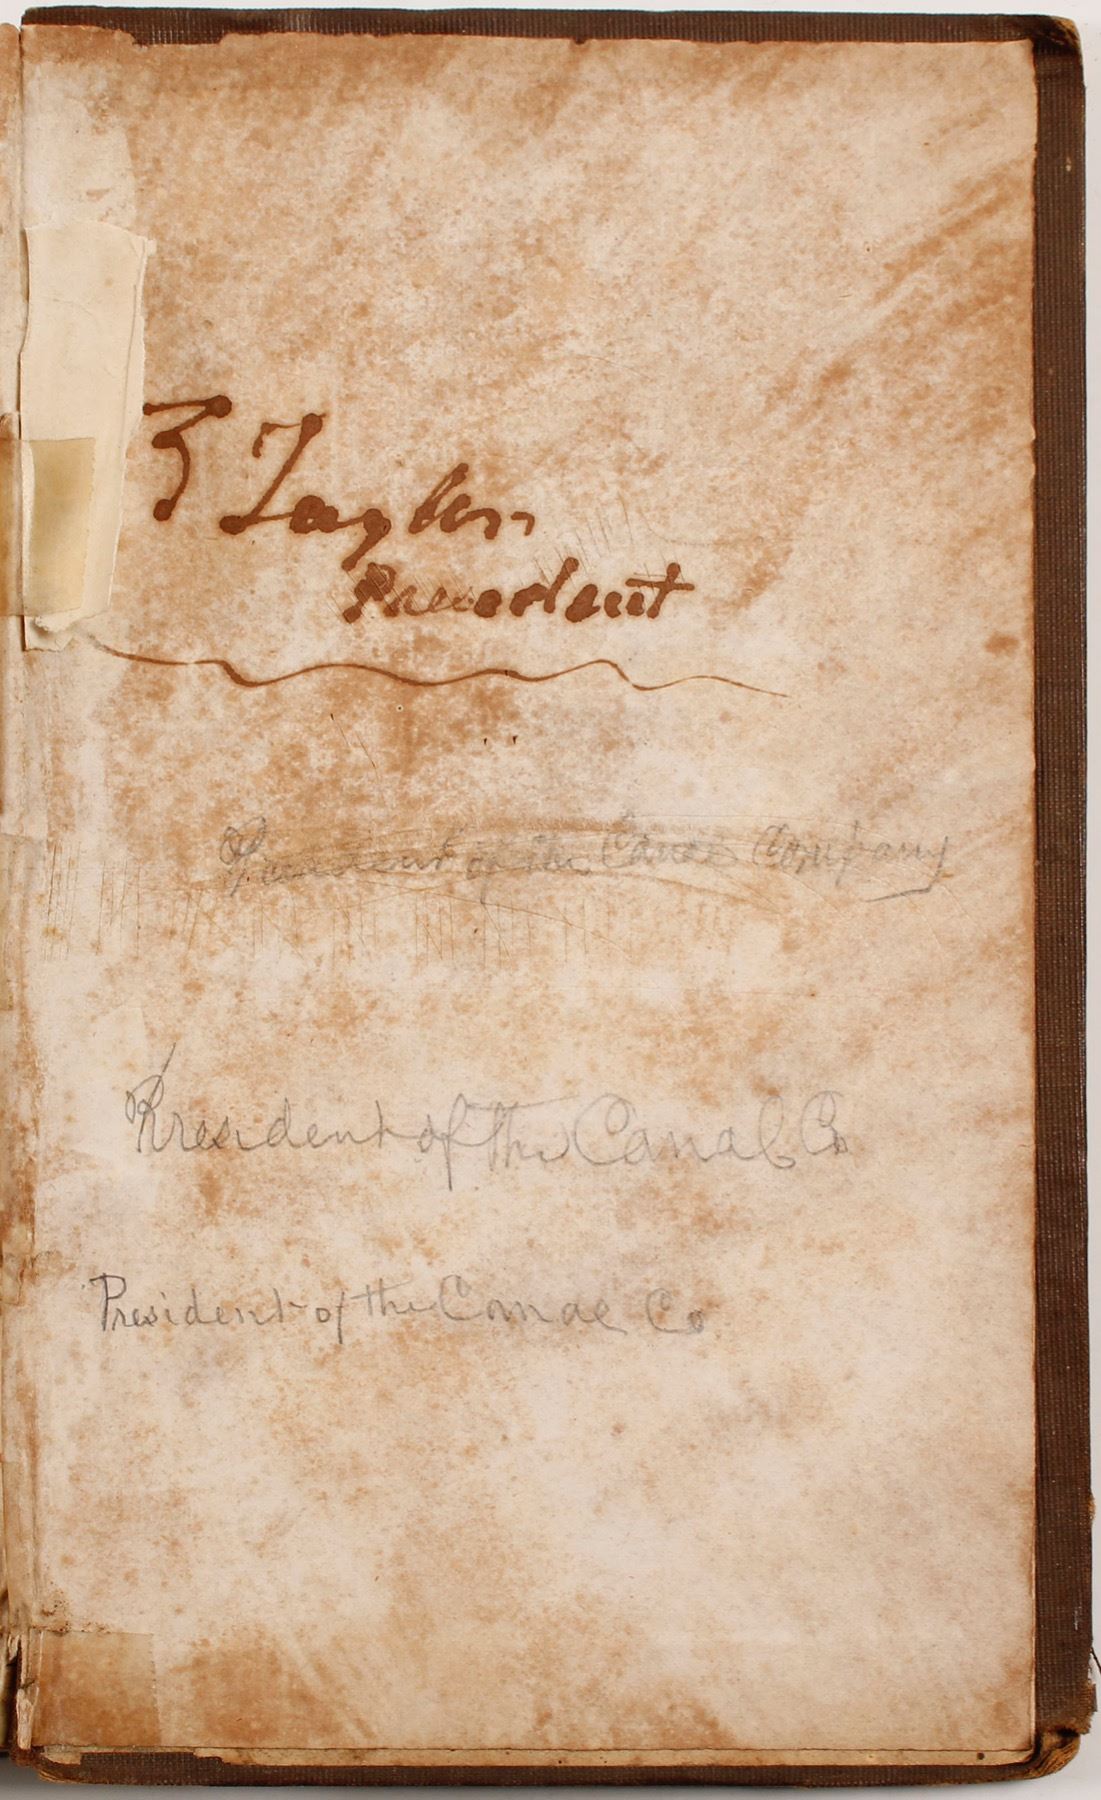 Z Taylor
President
President of the Canal Company
President of the Canal Co
President of the Canal Co